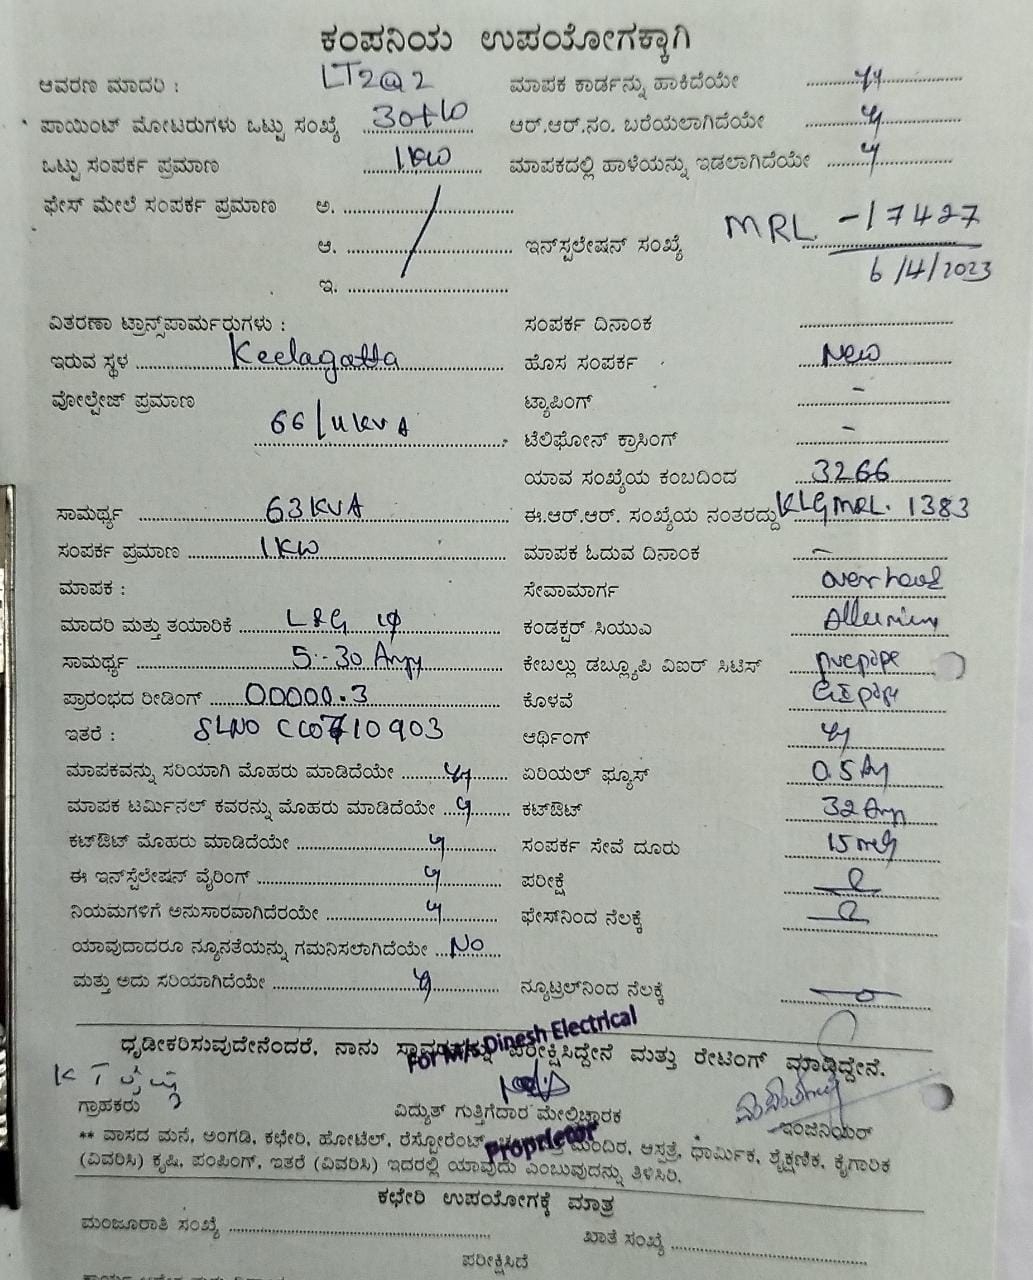 ಕಂಪನಿಯ ಉಪಯೋಗಕ್ಕಾಗಿ
ಆವರಣ ಮಾದರಿ : LT2a2 ಮಾಪಕ ಕಾರ್ಡನ್ನು ಹಾಕಿದೆಯೇ
ಪಾಯಿಂಟ್ ಮೋಟರುಗಳು ಒಟ್ಟು ಸಂಖ್ಯೆ ಆರ್.ಆರ್.ನಂ. ಬರೆಯಲಾಗಿದೆಯೇ
ಒಟ್ಟು ಸಂಪರ್ಕ ಪ್ರಮಾಣ 1KW ಮಾಪಕದಲ್ಲಿ ಹಾಳೆಯನ್ನು ಇಡಲಾಗಿದೆಯೇ
ಫೇಸ್ ಮೇಲೆ ಸಂಪರ್ಕ ಪ್ರಮಾಣ ಅ.
ಆ. ಇನ್‌ಸ್ಟಲೇಷನ್ ಸಂಖ್ಯೆ MRL -17427
6/4/2023
ಇ.
ವಿತರಣಾ ಟ್ರಾನ್ಸ್‌ಪಾರ್ಮರುಗಳು : ಸಂಪರ್ಕ ದಿನಾಂಕ
ಇರುವ ಸ್ಥಳ Keelagatta ಹೊಸ ಸಂಪರ್ಕ New
ವೋಲ್ಟೇಜ್ ಪ್ರಮಾಣ 66/11KVA ಟ್ಯಾಪಿಂಗ್ -
ಟೆಲಿಫೋನ್ ಕ್ರಾಸಿಂಗ್ -
ಯಾವ ಸಂಖ್ಯೆಯ ಕಂಬದಿಂದ 3266
ಸಾಮರ್ಥ್ಯ 63KVA ಈ.ಆರ್.ಆರ್. ಸಂಖ್ಯೆಯ ನಂತರದ್ದು KLGMRL. 1383
ಸಂಪರ್ಕ ಪ್ರಮಾಣ 1KW ಮಾಪಕ ಓದುವ ದಿನಾಂಕ -
ಮಾಪಕ : ಸೇವಾಮಾರ್ಗ over head
ಮಾದರಿ ಮತ್ತು ತಯಾರಿಕೆ L&G 1φ ಕಂಡಕ್ಟರ್ ಸಿಯುಎ
ಸಾಮರ್ಥ್ಯ 5-30 Amp ಕೇಬಲ್ಲು ಡಬ್ಲ್ಯೂಪಿ ವಿಐರ್ ಸಿಟಿಸ್ pvc pipe
ಪ್ರಾರಂಭದ ರೀಡಿಂಗ್ 00000.3 ಕೊಳವೆ GI pipe
ಇತರೆ : SLNO ಆರ್ಥಿಂಗ್
ಮಾಪಕವನ್ನು ಸರಿಯಾಗಿ ಮೊಹರು ಮಾಡಿದೆಯೇ ಏರಿಯಲ್ ಫ್ಯೂಸ್
ಮಾಪಕ ಟರ್ಮಿನಲ್ ಕವರನ್ನು ಮೊಹರು ಮಾಡಿದೆಯೇ ಕಟ್‌ಔಟ್ 32 Amp
ಕಟ್‌ಔಟ್ ಮೊಹರು ಮಾಡಿದೆಯೇ ಸಂಪರ್ಕ ಸೇವೆ ದೂರು
ಈ ಇನ್‌ಸ್ಟಲೇಷನ್ ವೈರಿಂಗ್ ಪರೀಕ್ಷೆ
ನಿಯಮಗಳಿಗೆ ಅನುಸಾರವಾಗಿದೆರಯೇ ಫೇಸ್‌ನಿಂದ ನೆಲಕ್ಕೆ
ಯಾವುದಾದರೂ ನ್ಯೂನತೆಯನ್ನು ಗಮನಿಸಲಾಗಿದೆಯೇ No
ಮತ್ತು ಅದು ಸರಿಯಾಗಿದೆಯೇ ನ್ಯೂಟ್ರಲ್‌ನಿಂದ ನೆಲಕ್ಕೆ
For M/s Dinesh Electrical
ಧೃಡೀಕರಿಸುವುದೇನೆಂದರೆ, ನಾನು ಪರೀಕ್ಷಿಸಿದ್ದೇನೆ ಮತ್ತು ರೇಟಿಂಗ್ ಮಾಡಿದ್ದೇನೆ.
ಗ್ರಾಹಕರು ವಿದ್ಯುತ್ ಗುತ್ತಿಗೆದಾರ ಮೇಲ್ವಿಚಾರಕ ಇಂಜಿನಿಯರ್
Proprietor
** ವಾಸದ ಮನೆ, ಅಂಗಡಿ, ಕಛೇರಿ, ಹೋಟೆಲ್, ರೆಸ್ಟೋರೆಂಟ್, ಮಂದಿರ, ಆಸ್ಪತ್ರೆ, ಧಾರ್ಮಿಕ, ಶೈಕ್ಷಣಿಕ, ಕೈಗಾರಿಕ
(ವಿವರಿಸಿ) ಕೃಷಿ, ಪಂಪಿಂಗ್, ಇತರೆ (ವಿವರಿಸಿ) ಇದರಲ್ಲಿ ಯಾವುದು ಎಂಬುವುದನ್ನು ತಿಳಿಸಿರಿ.
ಕಛೇರಿ ಉಪಯೋಗಕ್ಕೆ ಮಾತ್ರ
ಮಂಜೂರಾತಿ ಸಂಖ್ಯೆ ಖಾತೆ ಸಂಖ್ಯೆ
ಪರೀಕ್ಷಿಸಿದೆ